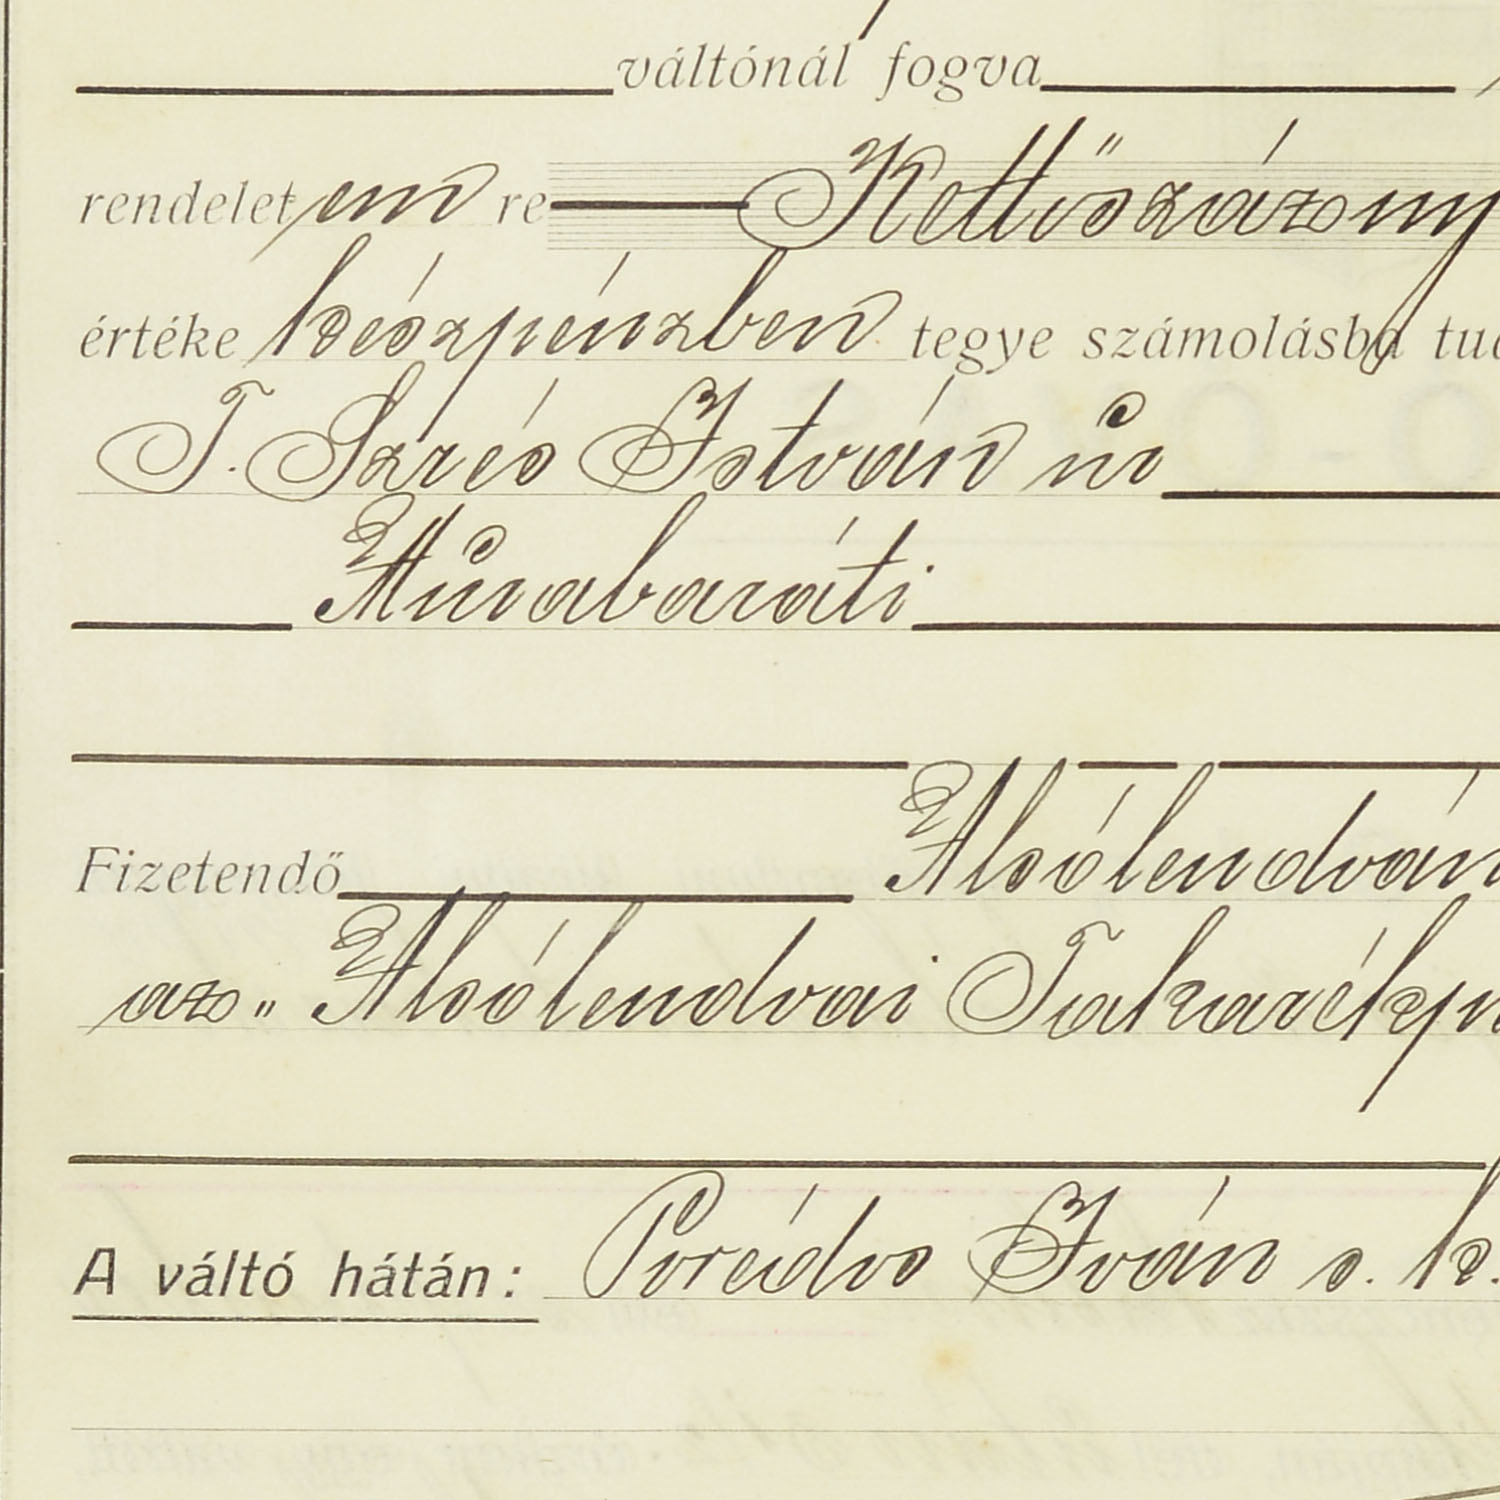 váltónál fogva
rendelet em re Kettőszázny
értéke készpénzben tegye számolásba tud
T. Szrés István úr
Murabaráti
Fizetendő Alsólendván
az „ Alsólendvai Takarékp
A váltó hátán: Porédos Iván s. k.